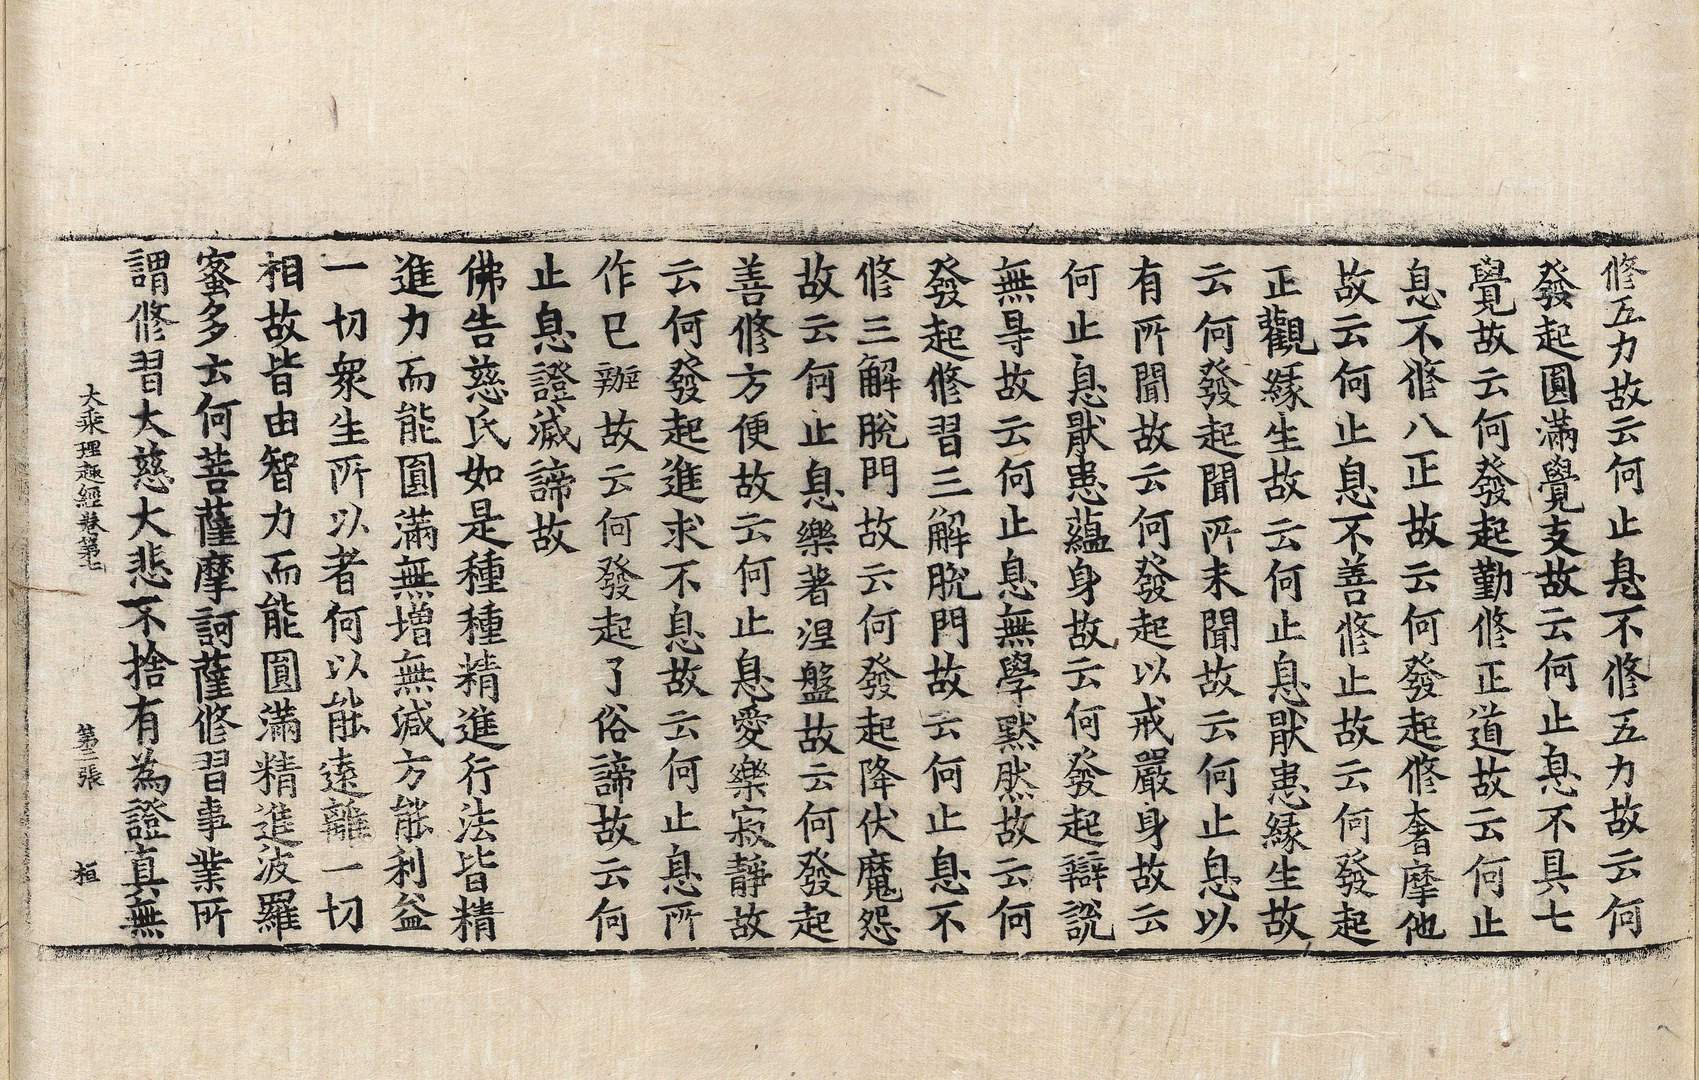 修五力故云何止息不修五力故云何
發起圓滿覺支故云何止息不具七
覺故云何發起勤修正道故云何止
息不修八正故云何發起修奢摩他
故云何止息不善修止故云何發起
正觀緣生故云何止息厭患緣生故
云何發起聞所未聞故云何止息以
有所聞故云何發起以戒嚴身故云
何止息厭患蘊身故云何發起辯說
無㝵故云何止息無學默然故云何
發起修習三解脫門故云何止息不
修三解脫門故云何發起降伏魔怨
故云何止息樂著涅盤故云何發起
善修方便故云何止息愛樂寂靜故
云何發起進求不息故云何止息所
作已辦故云何發起了俗諦故云何
止息證滅諦故
佛告慈氏如是種種精進行法皆精
進力而能圓滿無增無減方能利益
一切眾生所以者何以能遠離一切
相故皆由智力而能圓滿精進波羅
蜜多云何菩薩摩訶薩修習事業所
謂修習大慈大悲不捨有為證真無
大乘理趣經卷第七 第二張 桓